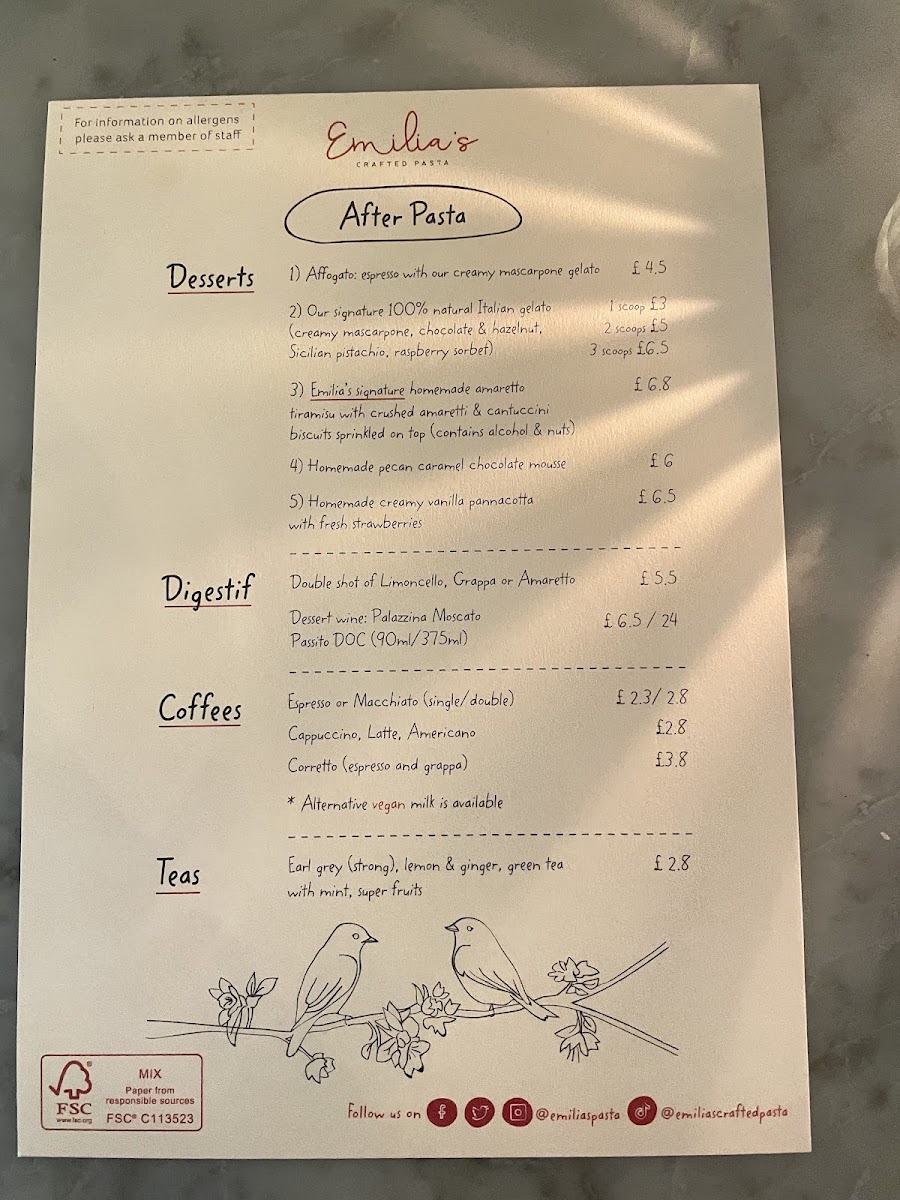 For information on allergens
please ask a member of staff
Emilia's
CRAFTED PASTA
After Pasta
Desserts
1) Affogato: espresso with our creamy mascarpone gelato £ 4.5
2) Our signature 100% natural Italian gelato 1 scoop £3
(creamy mascarpone, chocolate & hazelnut, 2 scoops £5
Sicilian pistachio, raspberry sorbet) 3 scoops £6.5
3) Emilia's signature homemade amaretto £ 6.8
tiramisu with crushed amaretti & cantuccini
biscuits sprinkled on top (contains alcohol & nuts)
4) Homemade pecan caramel chocolate mousse £ 6
5) Homemade creamy vanilla pannacotta £ 6.5
with fresh strawberries
Digestif
Double shot of Limoncello, Grappa or Amaretto £ 5.5
Dessert wine: Palazzina Moscato £ 6.5 / 24
Passito DOC (90ml/375ml)
Coffees
Espresso or Macchiato (single/double) £ 2.3/ 2.8
Cappuccino, Latte, Americano £2.8
Corretto (espresso and grappa) £3.8
* Alternative vegan milk is available
Teas
Earl grey (strong), lemon & ginger, green tea £ 2.8
with mint, super fruits
FSC®
www.fsc.org
MIX
Paper from
responsible sources
FSC® C113523
Follow us on @emiliaspasta @emiliascraftedpasta